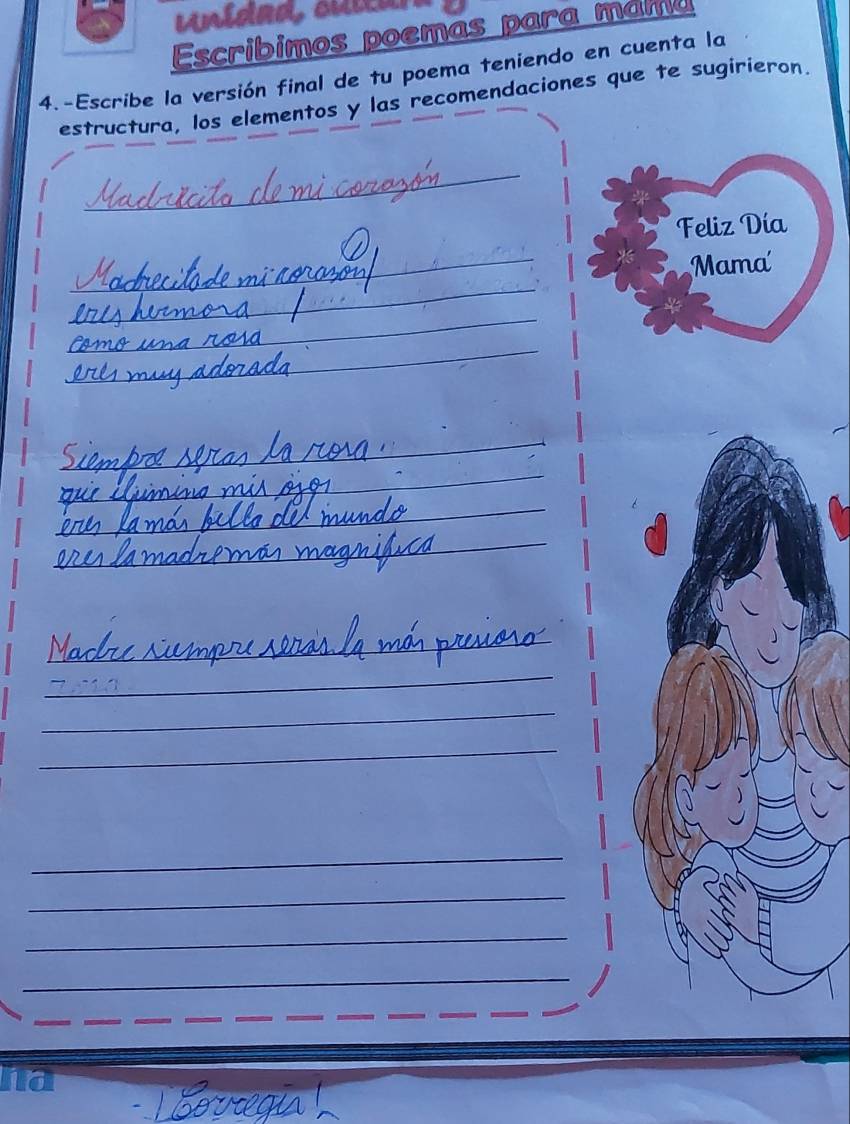 unidad,
Escribimos poemas para mamá
4.-Escribe la versión final de tu poema teniendo en cuenta la
estructura, los elementos y las recomendaciones que te sugirieron.
Madrecita de mi corazón
Feliz Día
Mama'
Madrecita de mi corazón
eres hermosa
como una rosa
eres muy adorada
Siempre seras la rosa.
que ilumina mis ojos
eres la más bella del mundo
eres la madre más magnifica
Madre siempre serás la más presioso
na
- ¡Corregir!